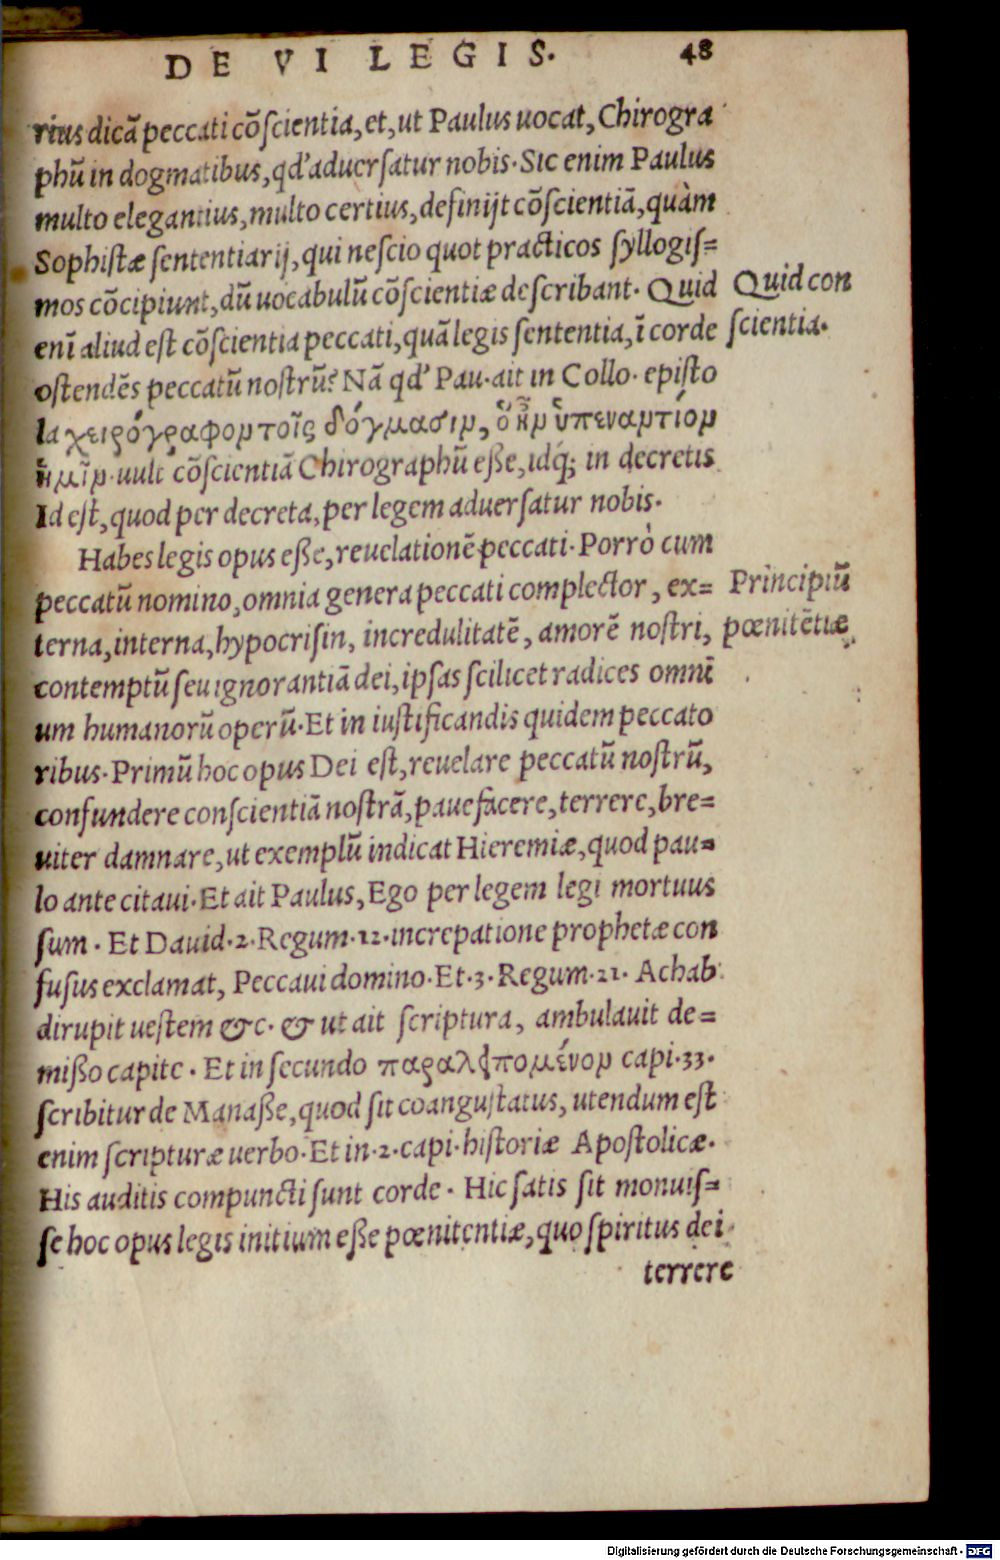 DE VI LEGIS. 48
rius dicā peccati cōſcientia, et, ut Paulus uocat, Chirogra
phū in dogmatibus, qđ aduerſatur nobis. Sic enim Paulus
multo elegantius, multo certius, definijt cōſcientiā, quàm
Sophiſtæ ſententiarij, qui neſcio quot practicos ſyllogiſ=
mos cōcipiunt, dū uocabulū cōſcientiæ deſcribant. Quid
enī aliud eſt cōſcientia peccati, quā legis ſententia, ī corde
Quid con
ſcientia.
oſtendēs peccatū noſtrū? Nā qđ Pau. ait in Collo. epiſto
la χειρόγραφον τοῖς δόγμασιν, ὃ ἦν ὑπεναντίον
ἡμῖν. uult cōſcientiā Chirographū eße, idq́; in decretis
Id eſt, quod per decreta, per legem aduerſatur nobis.
Habes legis opus eße, reuelationē peccati. Porrò cum
peccatū nomino, omnia genera peccati complector, ex=
terna, interna, hypocriſin, incredulitatē, amorē noſtri,
Principiū
pœnitētiæ
contemptū ſeu ignorantiā dei, ipſas ſcilicet radices omni
um humanorū operū. Et in iuſtificandis quidem peccato
ribus. Primū hoc opus Dei eſt, reuelare peccatū noſtrū,
confundere conſcientiā noſtrā, pauefacere, terrere, bre=
uiter damnare, ut exemplū indicat Hieremiæ, quod pau=
lo ante citaui. Et ait Paulus, Ego per legem legi mortuus
ſum. Et Dauid. 2. Regum. 12. increpatione prophetæ con
fuſus exclamat, Peccaui domino. Et. 3. Regum. 21. Achab
dirupit ueſtem &c. & ut ait ſcriptura, ambulauit de=
mißo capite. Et in ſecundo παραλειπομένον capi. 33.
ſcribitur de Manaße, quod ſit coanguſtatus, utendum eſt
enim ſcripturæ uerbo. Et in. 2. capi. hiſtoriæ Apoſtolicæ.
His auditis compuncti ſunt corde. Hic ſatis ſit monuiſ=
ſe hoc opus legis initium eße pœnitentiæ, quo ſpiritus dei
terrere
Digitalisierung gefördert durch die Deutsche Forschungsgemeinschaft - DFG